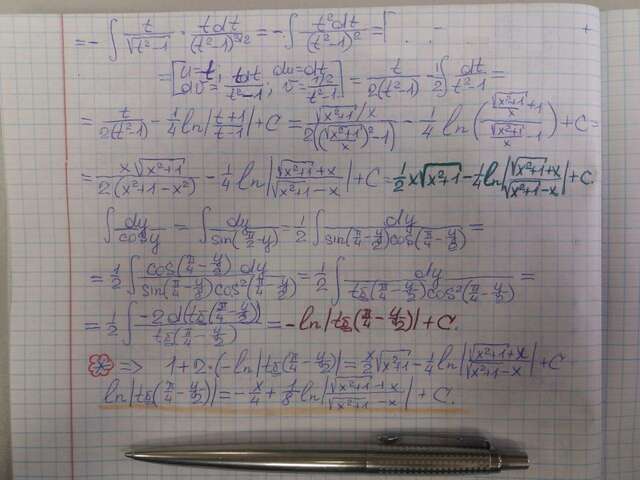 = - ∫ t/√(t²-1) · tdt/(t²-1)^(3/2) = - ∫ t²dt/(t²-1)² = [
= [u=t, du=dt; dv = tdt/(t²-1)², v = -1/2/(t²-1)] = t/(2(t²-1)) - 1/2 ∫ dt/(t²-1) =
= t/(2(t²-1)) - 1/4 ln|(t+1)/(t-1)| + C = (√(x²+1)/x)/(2((√(x²+1)/x)²-1)) - 1/4 ln((√(x²+1)/x+1)/(√(x²+1)/x-1)) + C =
= x√(x²+1)/(2(x²+1-x²)) - 1/4 ln|(√(x²+1)+x)/(√(x²+1)-x)| + C = 1/2 x√(x²+1) - 1/4 ln|(√(x²+1)+x)/(√(x²+1)-x)| + C.
∫ dy/cosy = ∫ dy/sin(π/2-y) = 1/2 ∫ dy/(sin(π/4-y/2)cos(π/4-y/2)) =
= 1/2 ∫ cos(π/4-y/2)dy/(sin(π/4-y/2)cos²(π/4-y/2)) = 1/2 ∫ dy/(tg(π/4-y/2)cos²(π/4-y/2)) =
= 1/2 ∫ -2d(tg(π/4-y/2))/tg(π/4-y/2) = -ln|tg(π/4-y/2)| + C.
* => 1+2·(-ln|tg(π/4-y/2)| = x/2 √(x²+1) - 1/4 ln|(√(x²+1)+x)/(√(x²+1)-x)| + C
ln|tg(π/4-y/2)| = -x/4 + 1/8 ln|(√(x²+1)+x)/(√(x²+1)-x)| + C.